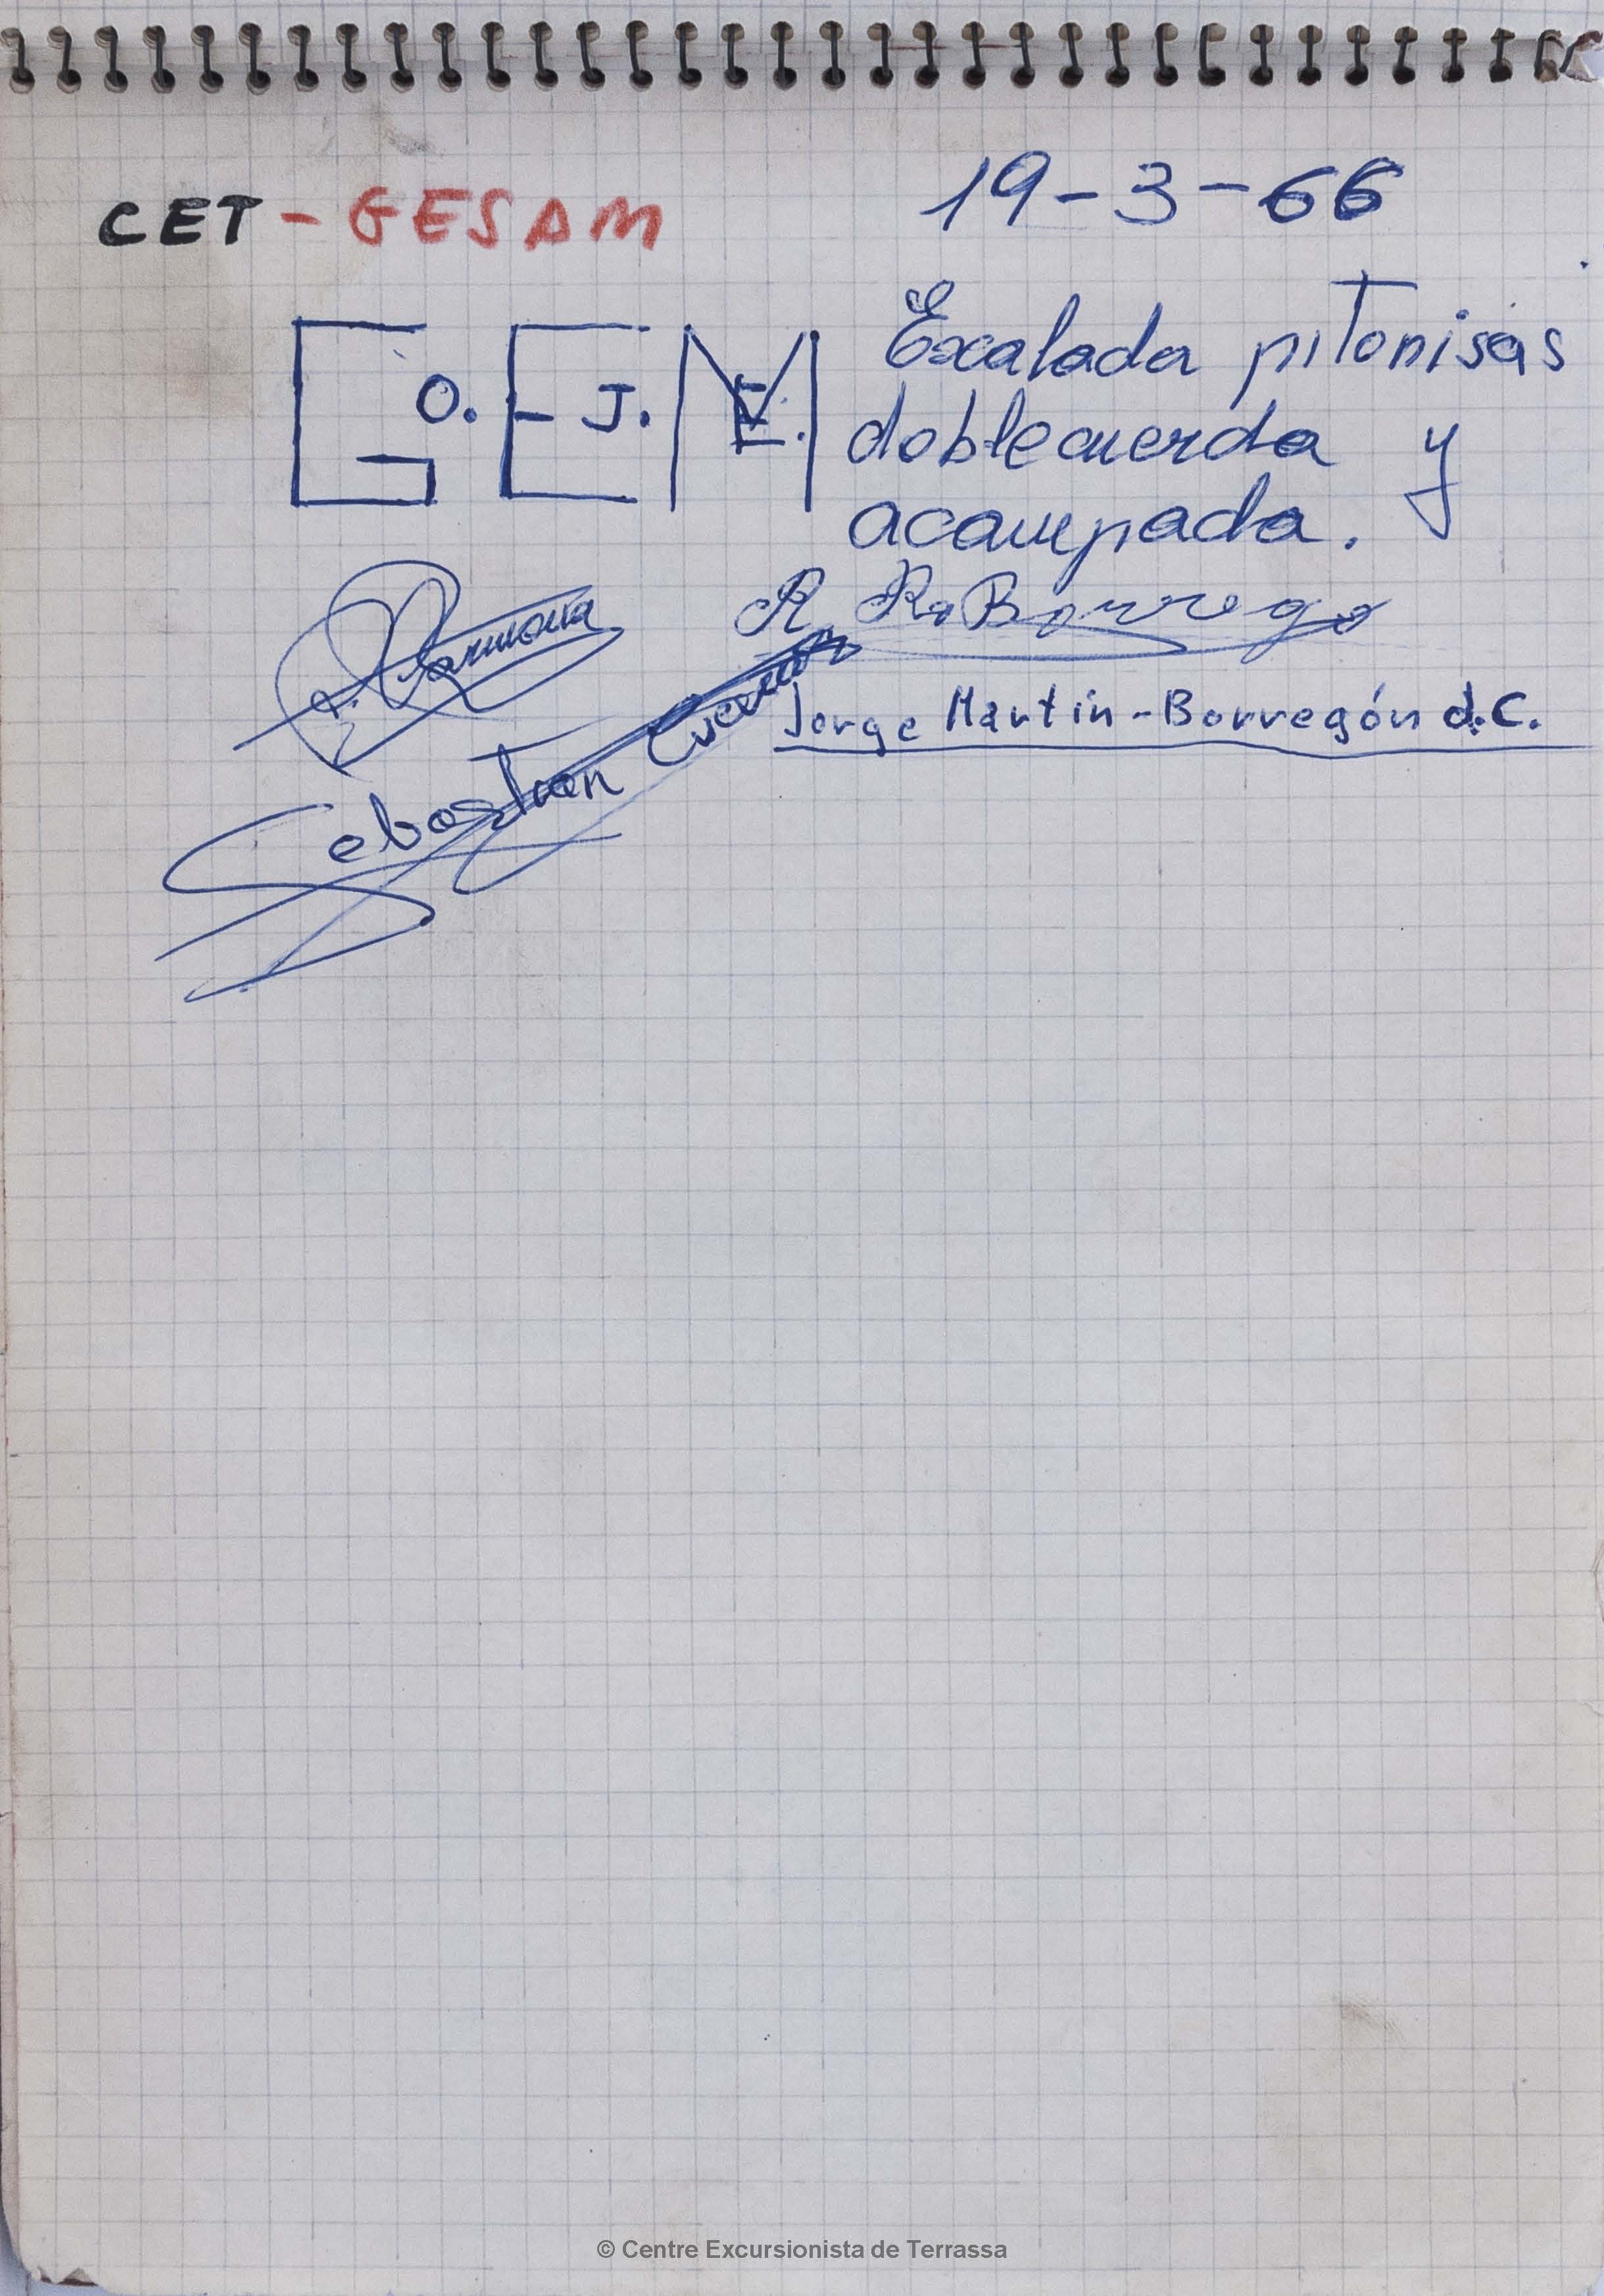 CET - GESAM
19-3-66
G O. E J. M E.
Excalada pitonisas
doblecuerda y
acampada.
Carmona
R. Ro Borrego
Sebastian
Jorge Martin-Borregón d.C.
© Centre Excursionista de Terrassa